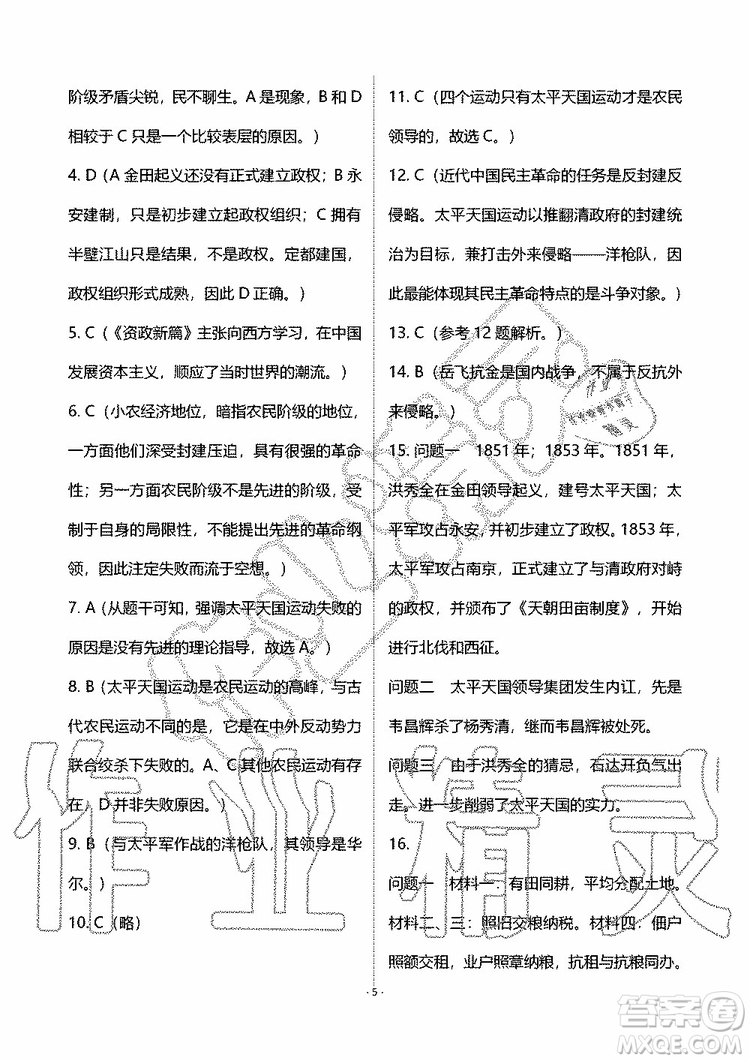 阶级矛盾尖锐，民不聊生。A 是现象，B 和 D
相较于 C 只是一个比较表层的原因。）
4. D（A 金田起义还没有正式建立政权；B 永
安建制，只是初步建立起政权组织；C 拥有
半壁江山只是结果，不是政权。定都建国，
政权组织形式成熟，因此 D 正确。）
5. C（《资政新篇》主张向西方学习，在中国
发展资本主义，顺应了当时世界的潮流。）
6. C（小农经济地位，暗指农民阶级的地位，
一方面他们深受封建压迫，具有很强的革命
性；另一方面农民阶级不是先进的阶级，受
制于自身的局限性，不能提出先进的革命纲
领，因此注定失败而流于空想。）
7. A（从题干可知，强调太平天国运动失败的
原因是没有先进的理论指导，故选 A。）
8. B（太平天国运动是农民运动的高峰，与古
代农民运动不同的是，它是在中外反动势力
联合绞杀下失败的。A、C 其他农民运动有存
在，D 并非失败原因。）
9. B（与太平军作战的洋枪队，其领导是华
尔。）
10. C（略）
11. C（四个运动只有太平天国运动才是农民
领导的，故选 C。）
12. C（近代中国民主革命的任务是反封建反
侵略。太平天国运动以推翻清政府的封建统
治为目标，兼打击外来侵略——洋枪队，因
此最能体现其民主革命特点的是斗争对象。）
13. C（参考 12 题解析。）
14. B（岳飞抗金是国内战争，不属于反抗外
来侵略。）
15. 问题一 1851 年；1853 年。1851 年，
洪秀全在金田领导起义，建号太平天国；太
平军攻占永安，并初步建立了政权。1853 年，
太平军攻占南京，正式建立了与清政府对峙
的政权，并颁布了《天朝田亩制度》，先后
进行北伐和西征。
问题二 太平天国领导集团发生内讧，先是
韦昌辉杀了杨秀清，继而韦昌辉被处死。
问题三 由于洪秀全的猜忌，石达开负气出
走。进一步削弱了太平天国的实力。
16.
问题一 材料一：有田同耕，平均分配土地。
材料二、三：照旧交粮纳税。材料四：佃户
照额交租，业户照章纳粮，抗租与抗粮同办。
· 5 ·
作业精灵
作业精灵
答案圈
MXQE.COM